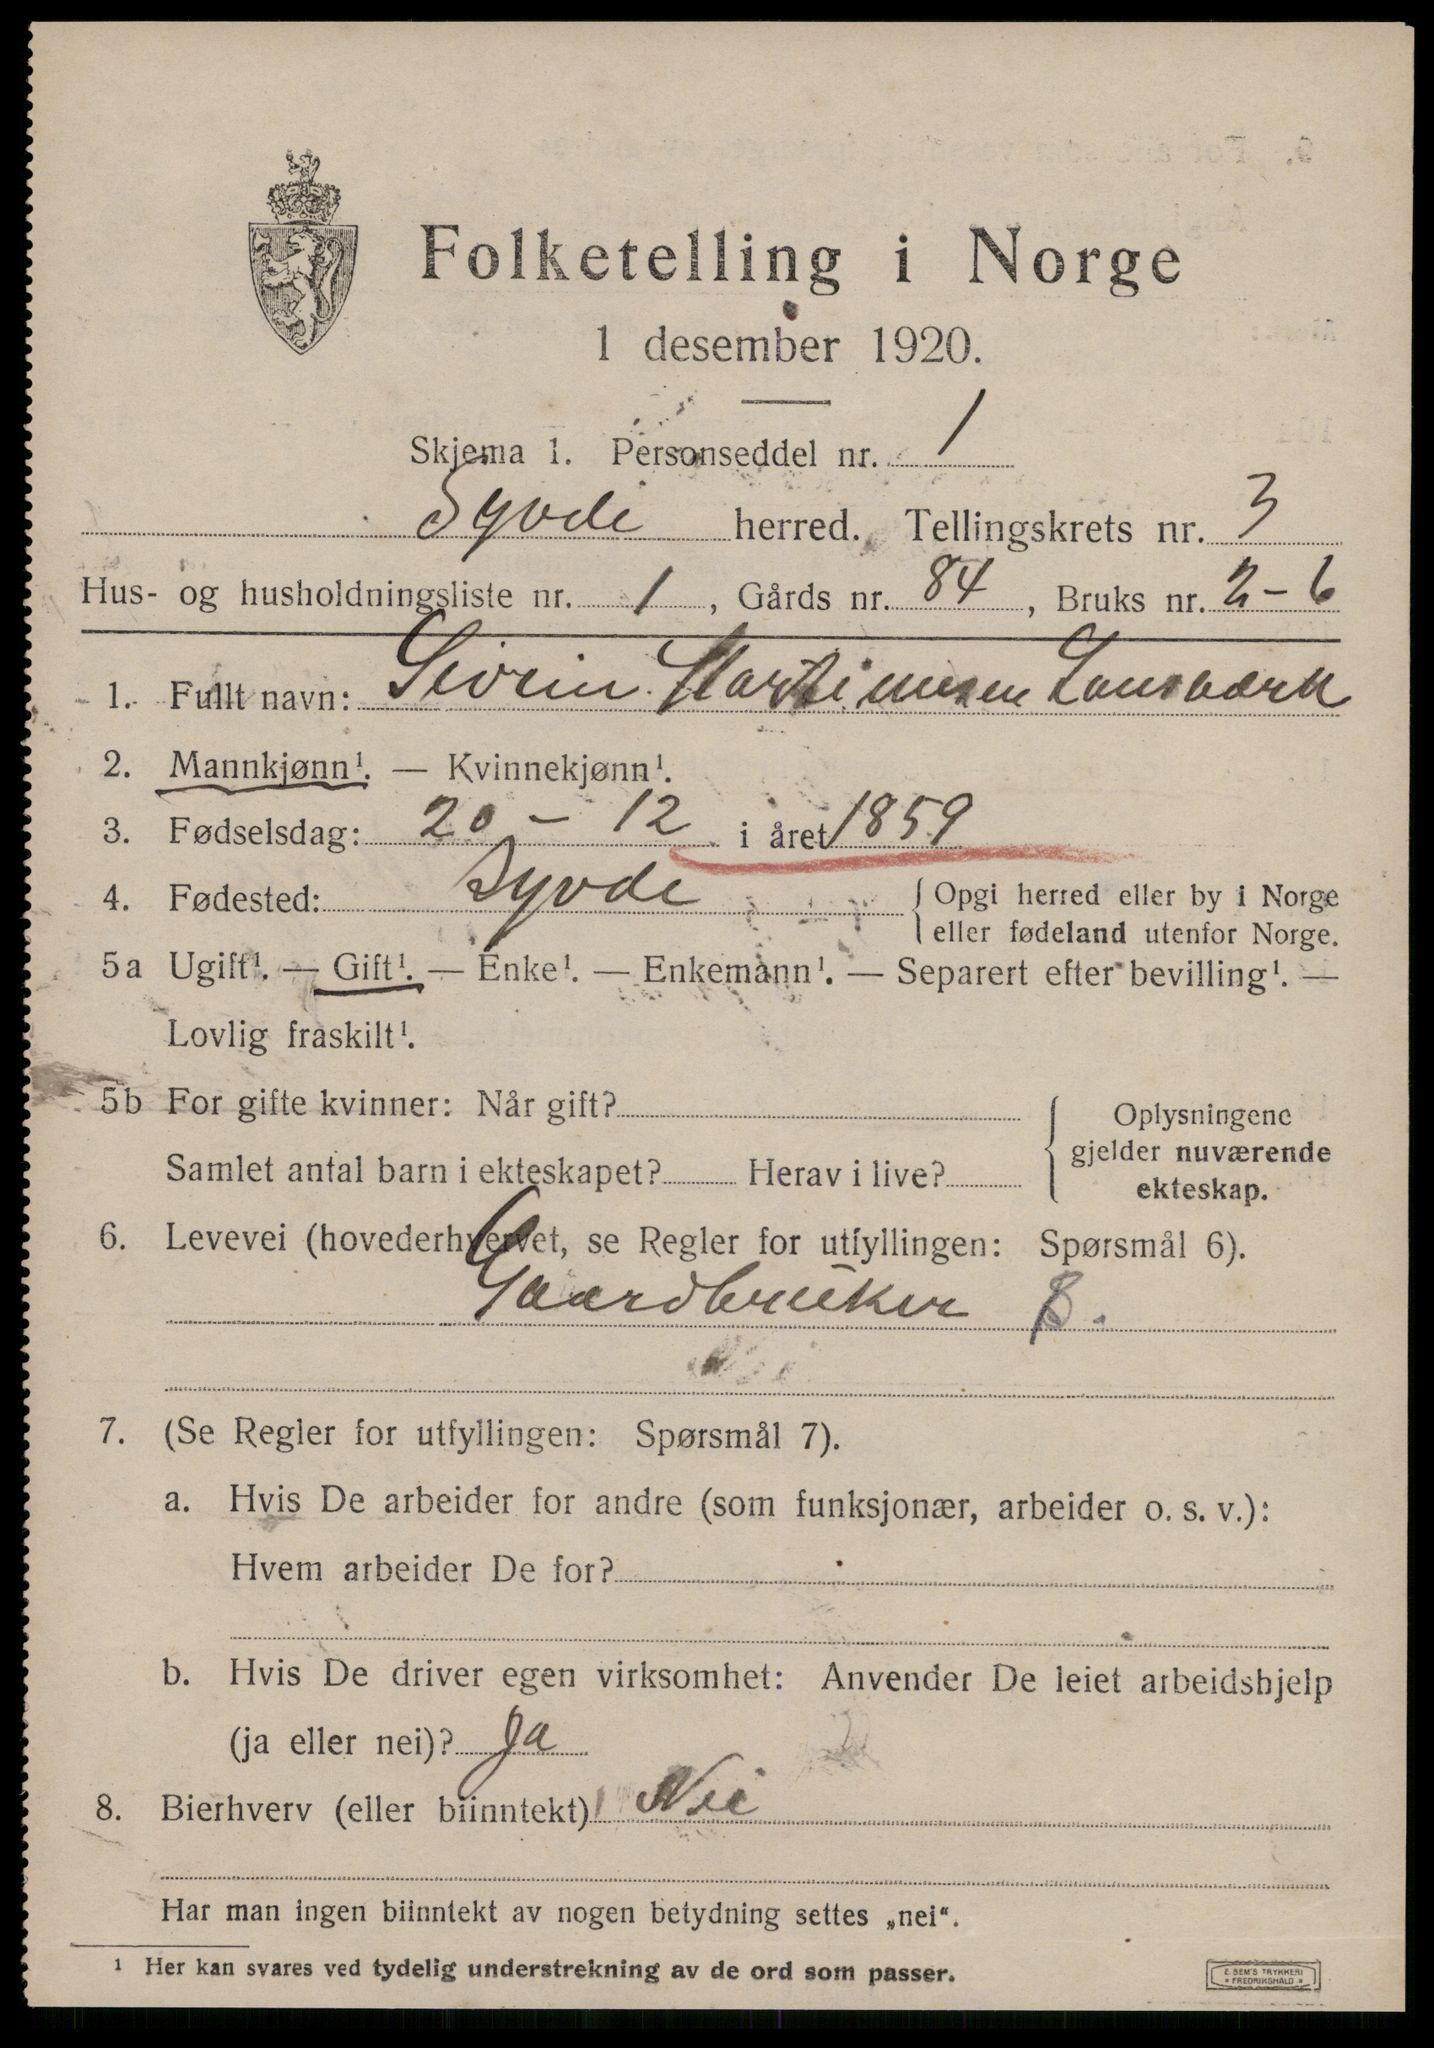 Folketelling i Norge
1 desember 1920.
Skjema 1. Personseddel nr. 1
Syvde herred. Tellingskrets nr. 3
Hus- og husholdningsliste nr. 1, Gårds nr. 84, Bruks nr. 2-6
1. Fullt navn: Sivrin Martinusen
2. Mannkjønn¹. — Kvinnekjønn¹.
3. Fødselsdag: 20 - 12 i året 1859
4. Fødested: Syvde { Opgi herred eller by i Norge
eller fødeland utenfor Norge.
5a Ugift¹. — Gift¹. — Enke¹. — Enkemann¹. — Separert efter bevilling¹. —
Lovlig fraskilt¹.
5b For gifte kvinner: Når gift?
Samlet antal barn i ekteskapet? Herav i live?
{ Oplysningene
gjelder nuværende
ekteskap.
6. Levevei (hovederhvervet, se Regler for utfyllingen: Spørsmål 6).
Gaardbruker B.
7. (Se Regler for utfyllingen: Spørsmål 7).
a. Hvis De arbeider for andre (som funksjonær, arbeider o. s. v.):
Hvem arbeider De for?
b. Hvis De driver egen virksomhet: Anvender De leiet arbeidshjelp
(ja eller nei)? Ja
8. Bierhverv (eller biinntekt) Nei
Har man ingen biinntekt av nogen betydning settes „nei“.
¹ Her kan svares ved tydelig understrekning av de ord som passer.
E. SEM'S TRYKKERI
* FREDRIKSHALD *